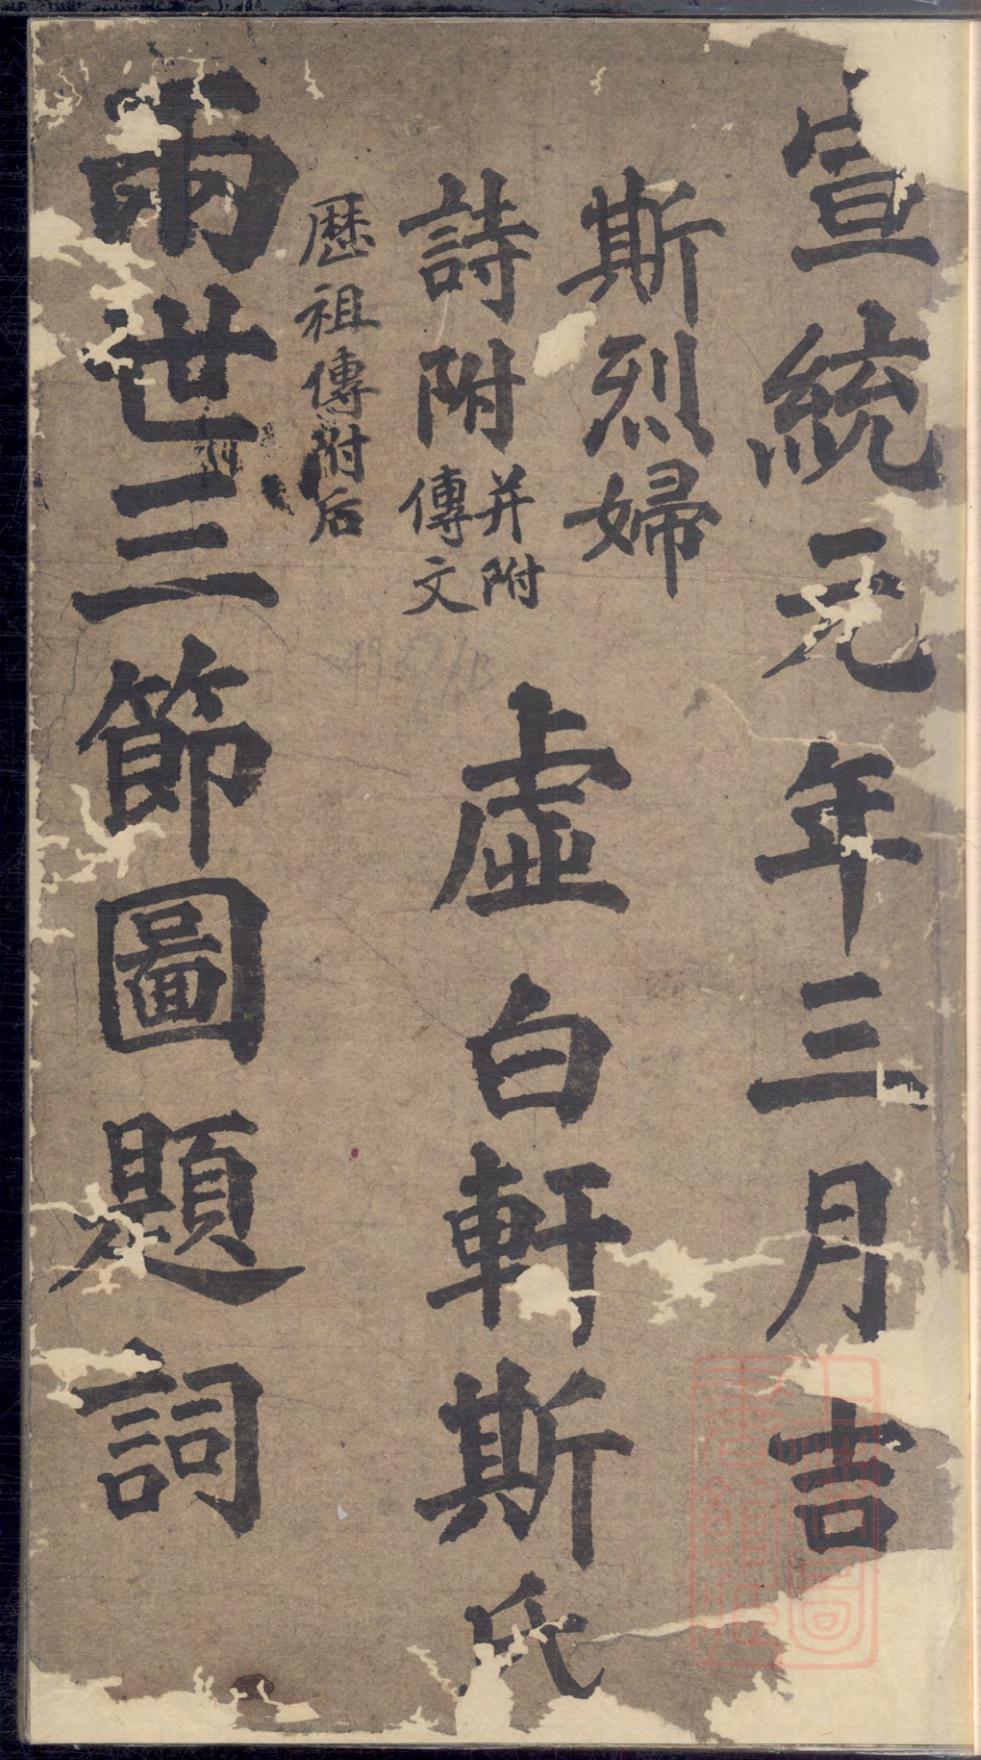 宣統元年三月吉
斯烈婦
詩附
并附
傳文
虛白軒斯氏
歷祖傳附后
兩世三節圖題詞